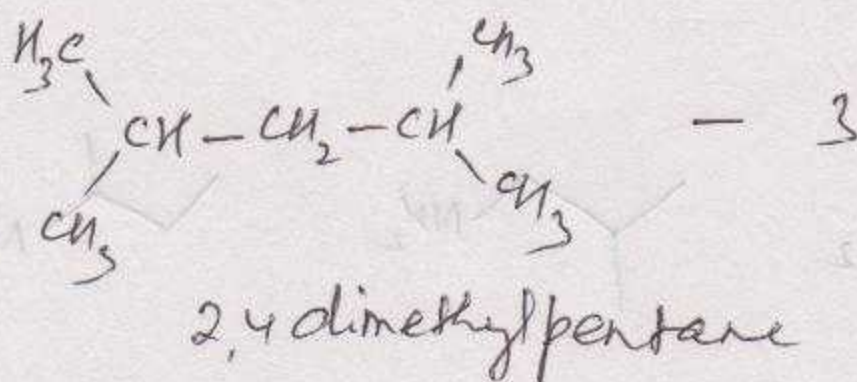 H₃C CH₃
CH – CH₂ – CH – 3
CH₃ CH₃
2,4 dimethylpentane